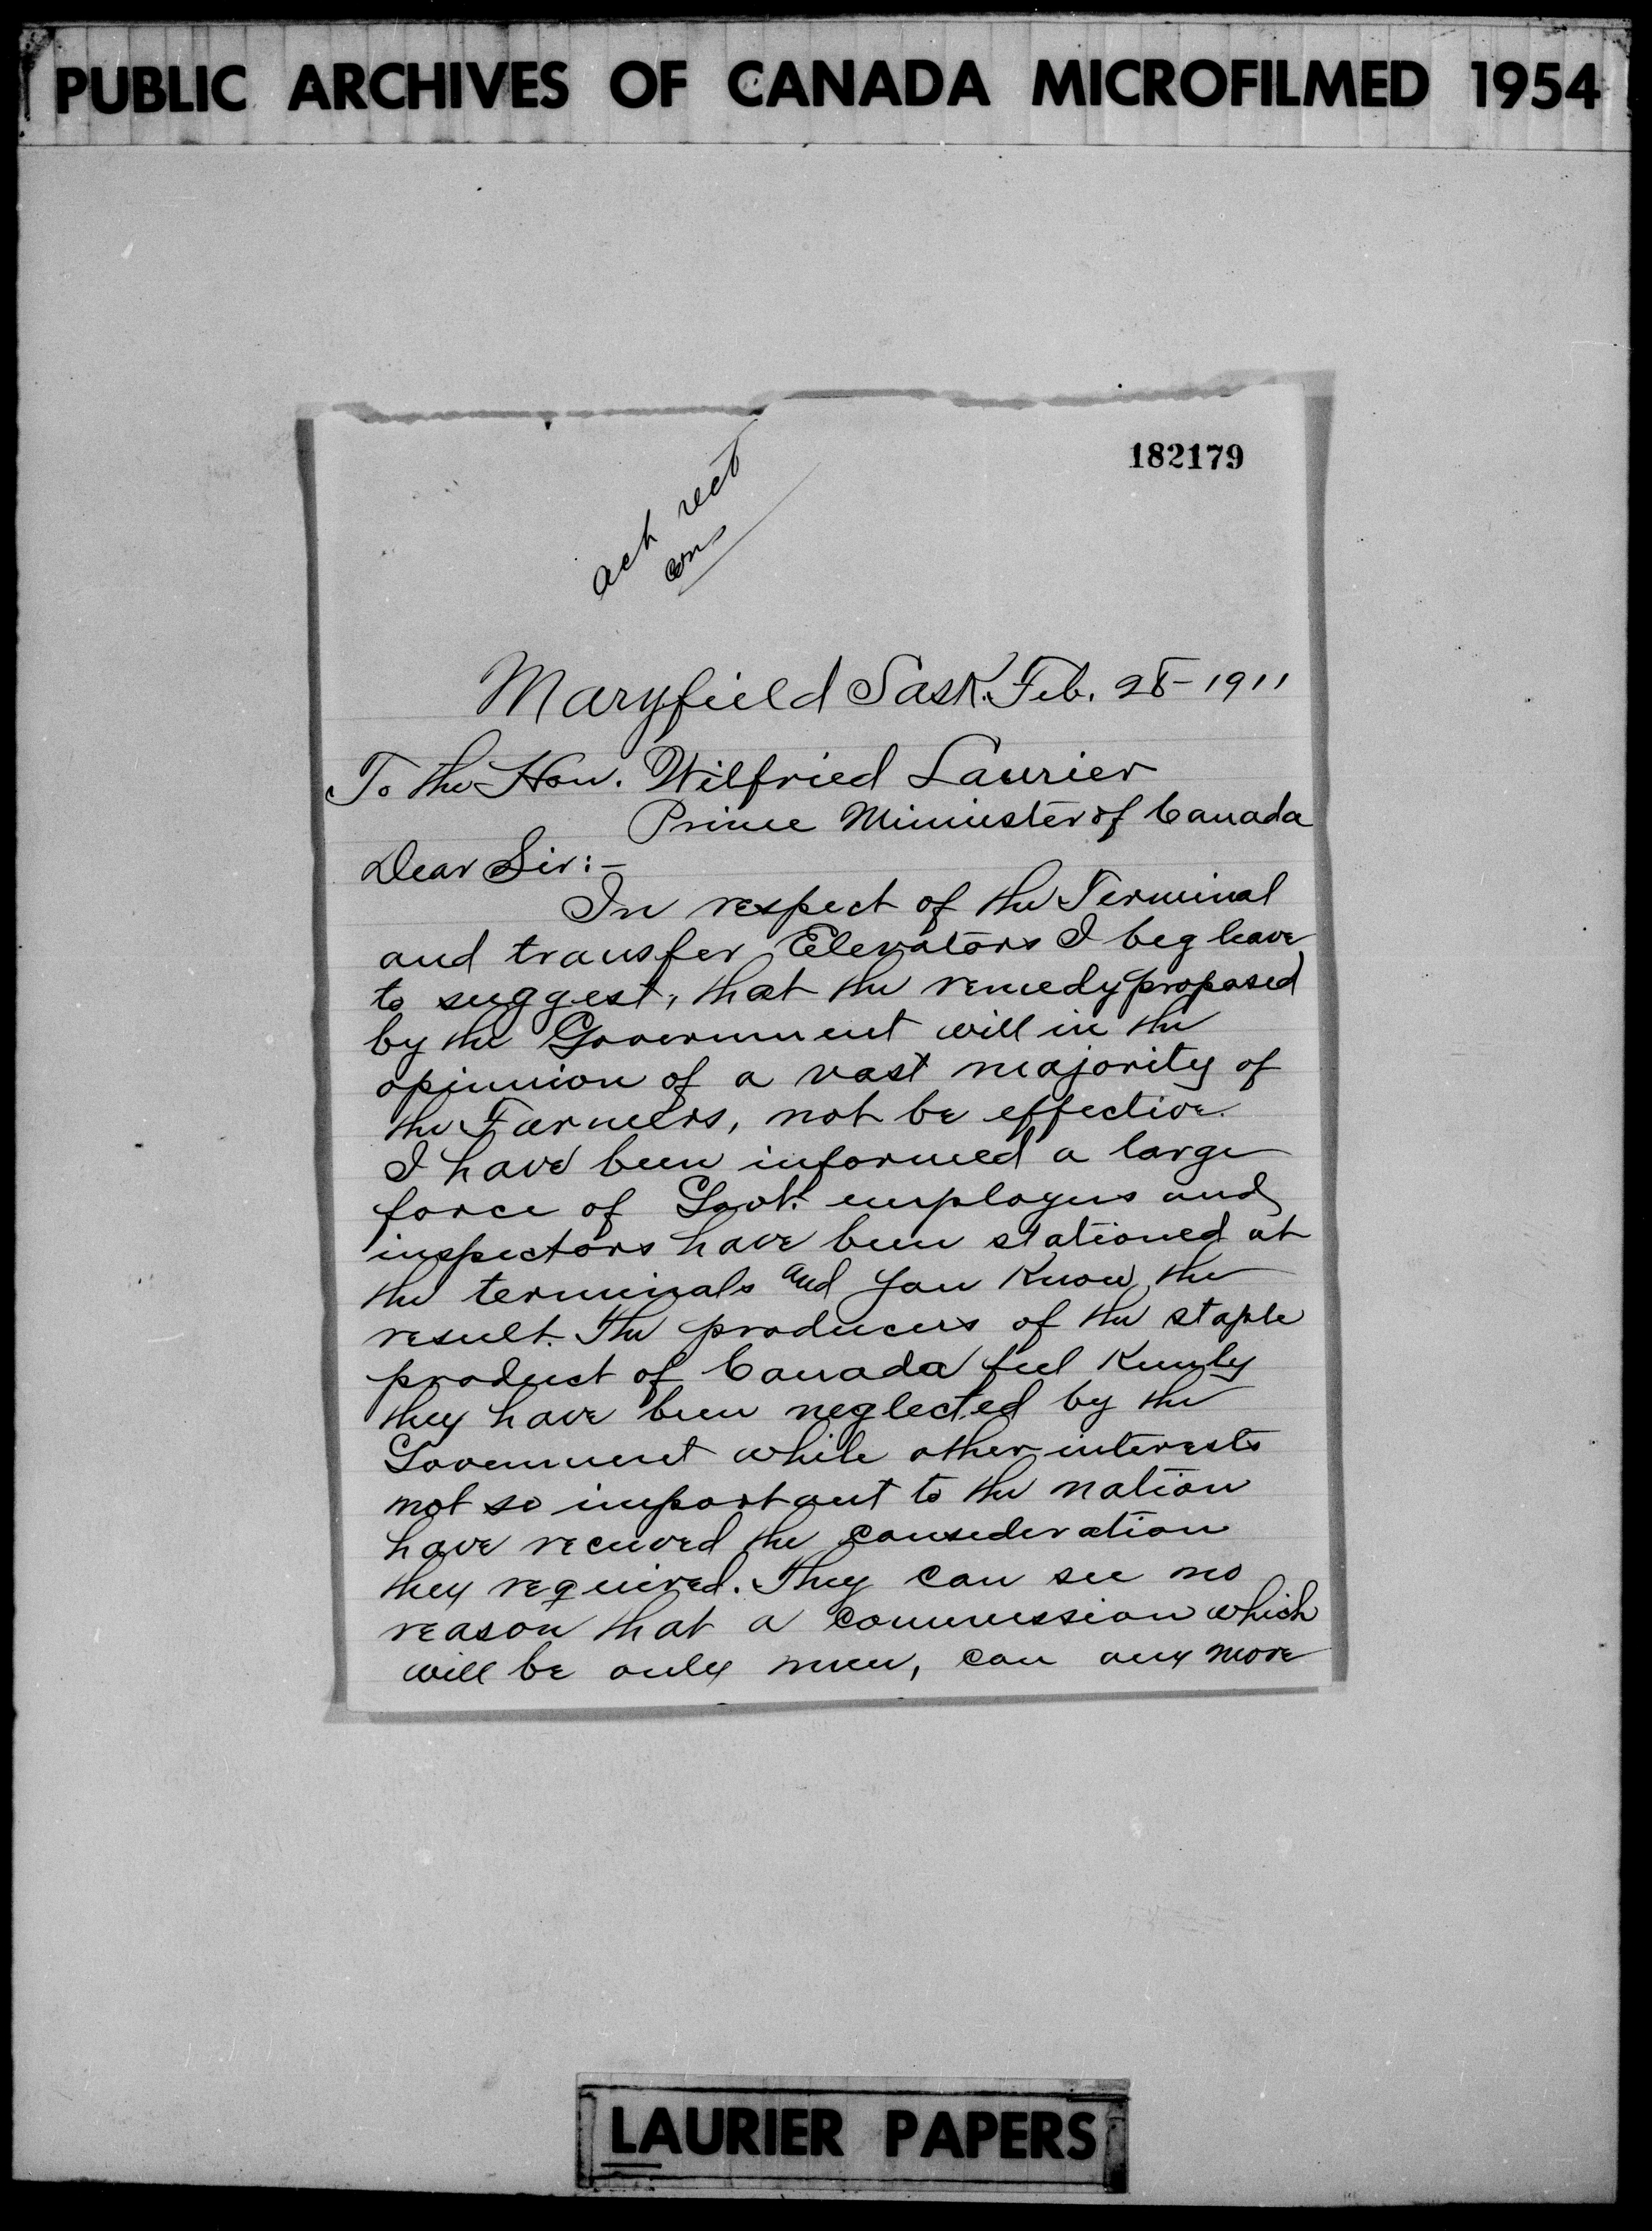 PUBLIC ARCHIVES OF CANADA MICROFILMED 1954
182179
ack rect
Maryfield Sask. Feb. 28-1911
To the Hon. Wilfried Laurier
Prime Mininster of Canada
Dear Sir:-
In respect of the Terminal
and transfer Elevators I beg leave
to suggest, that the remedy proposed
by the Government will in the
opinnion of a vast majority of
the Farmers, not be effective.
I have been informed a large
force of Govt. employees and
inspectors have been stationed at
the terminals and you know the
result. The producers of the staple
product of Canada feel keenly
they have been neglected by the
Government while other interests
not so important to the nation
have recieved the consideration
they required. They can see no
reason that a commission which
will be only men, can any more
LAURIER PAPERS